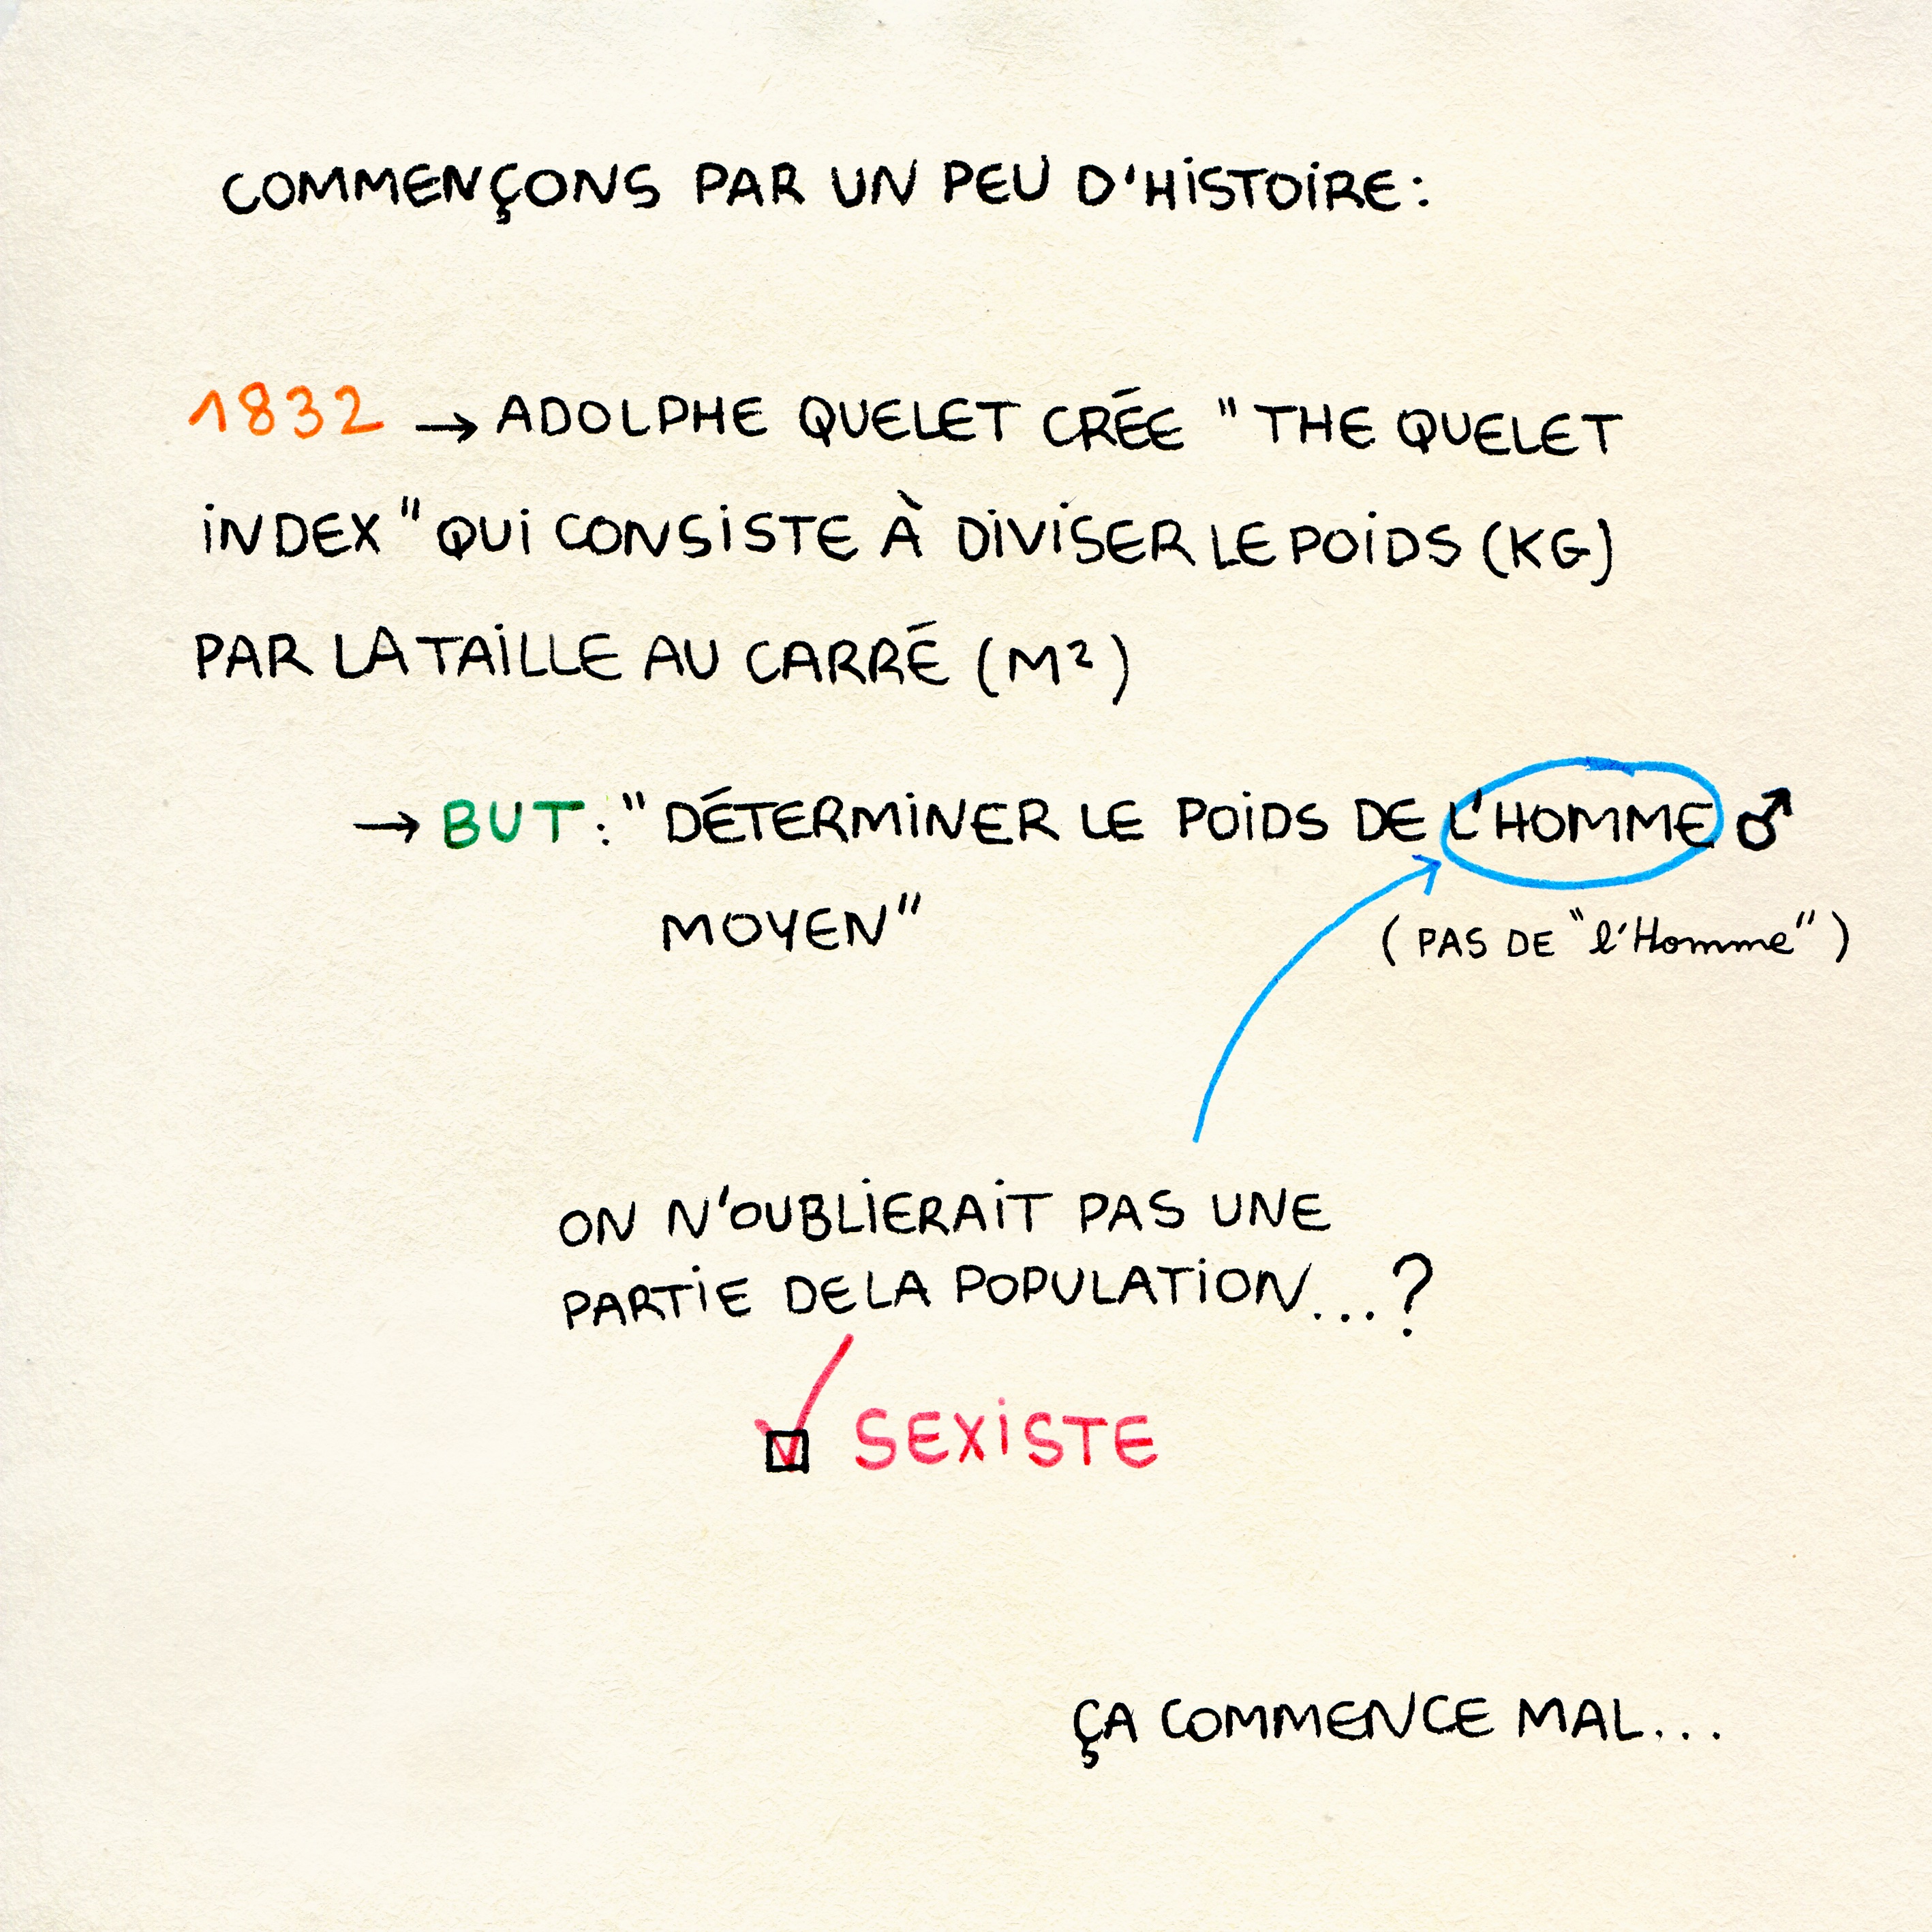 COMMENÇONS PAR UN PEU D'HISTOIRE:
1832 → ADOLPHE QUELET CRÉE "THE QUELET
INDEX" QUI CONSISTE À DIVISER LE POIDS (KG)
PAR LA TAILLE AU CARRÉ (M²)
→ BUT: "DÉTERMINER LE POIDS DE L'HOMME ♂
MOYEN"
(PAS DE "l'Homme")
ON N'OUBLIERAIT PAS UNE
PARTIE DE LA POPULATION...?
☑ SEXISTE
ÇA COMMENCE MAL...